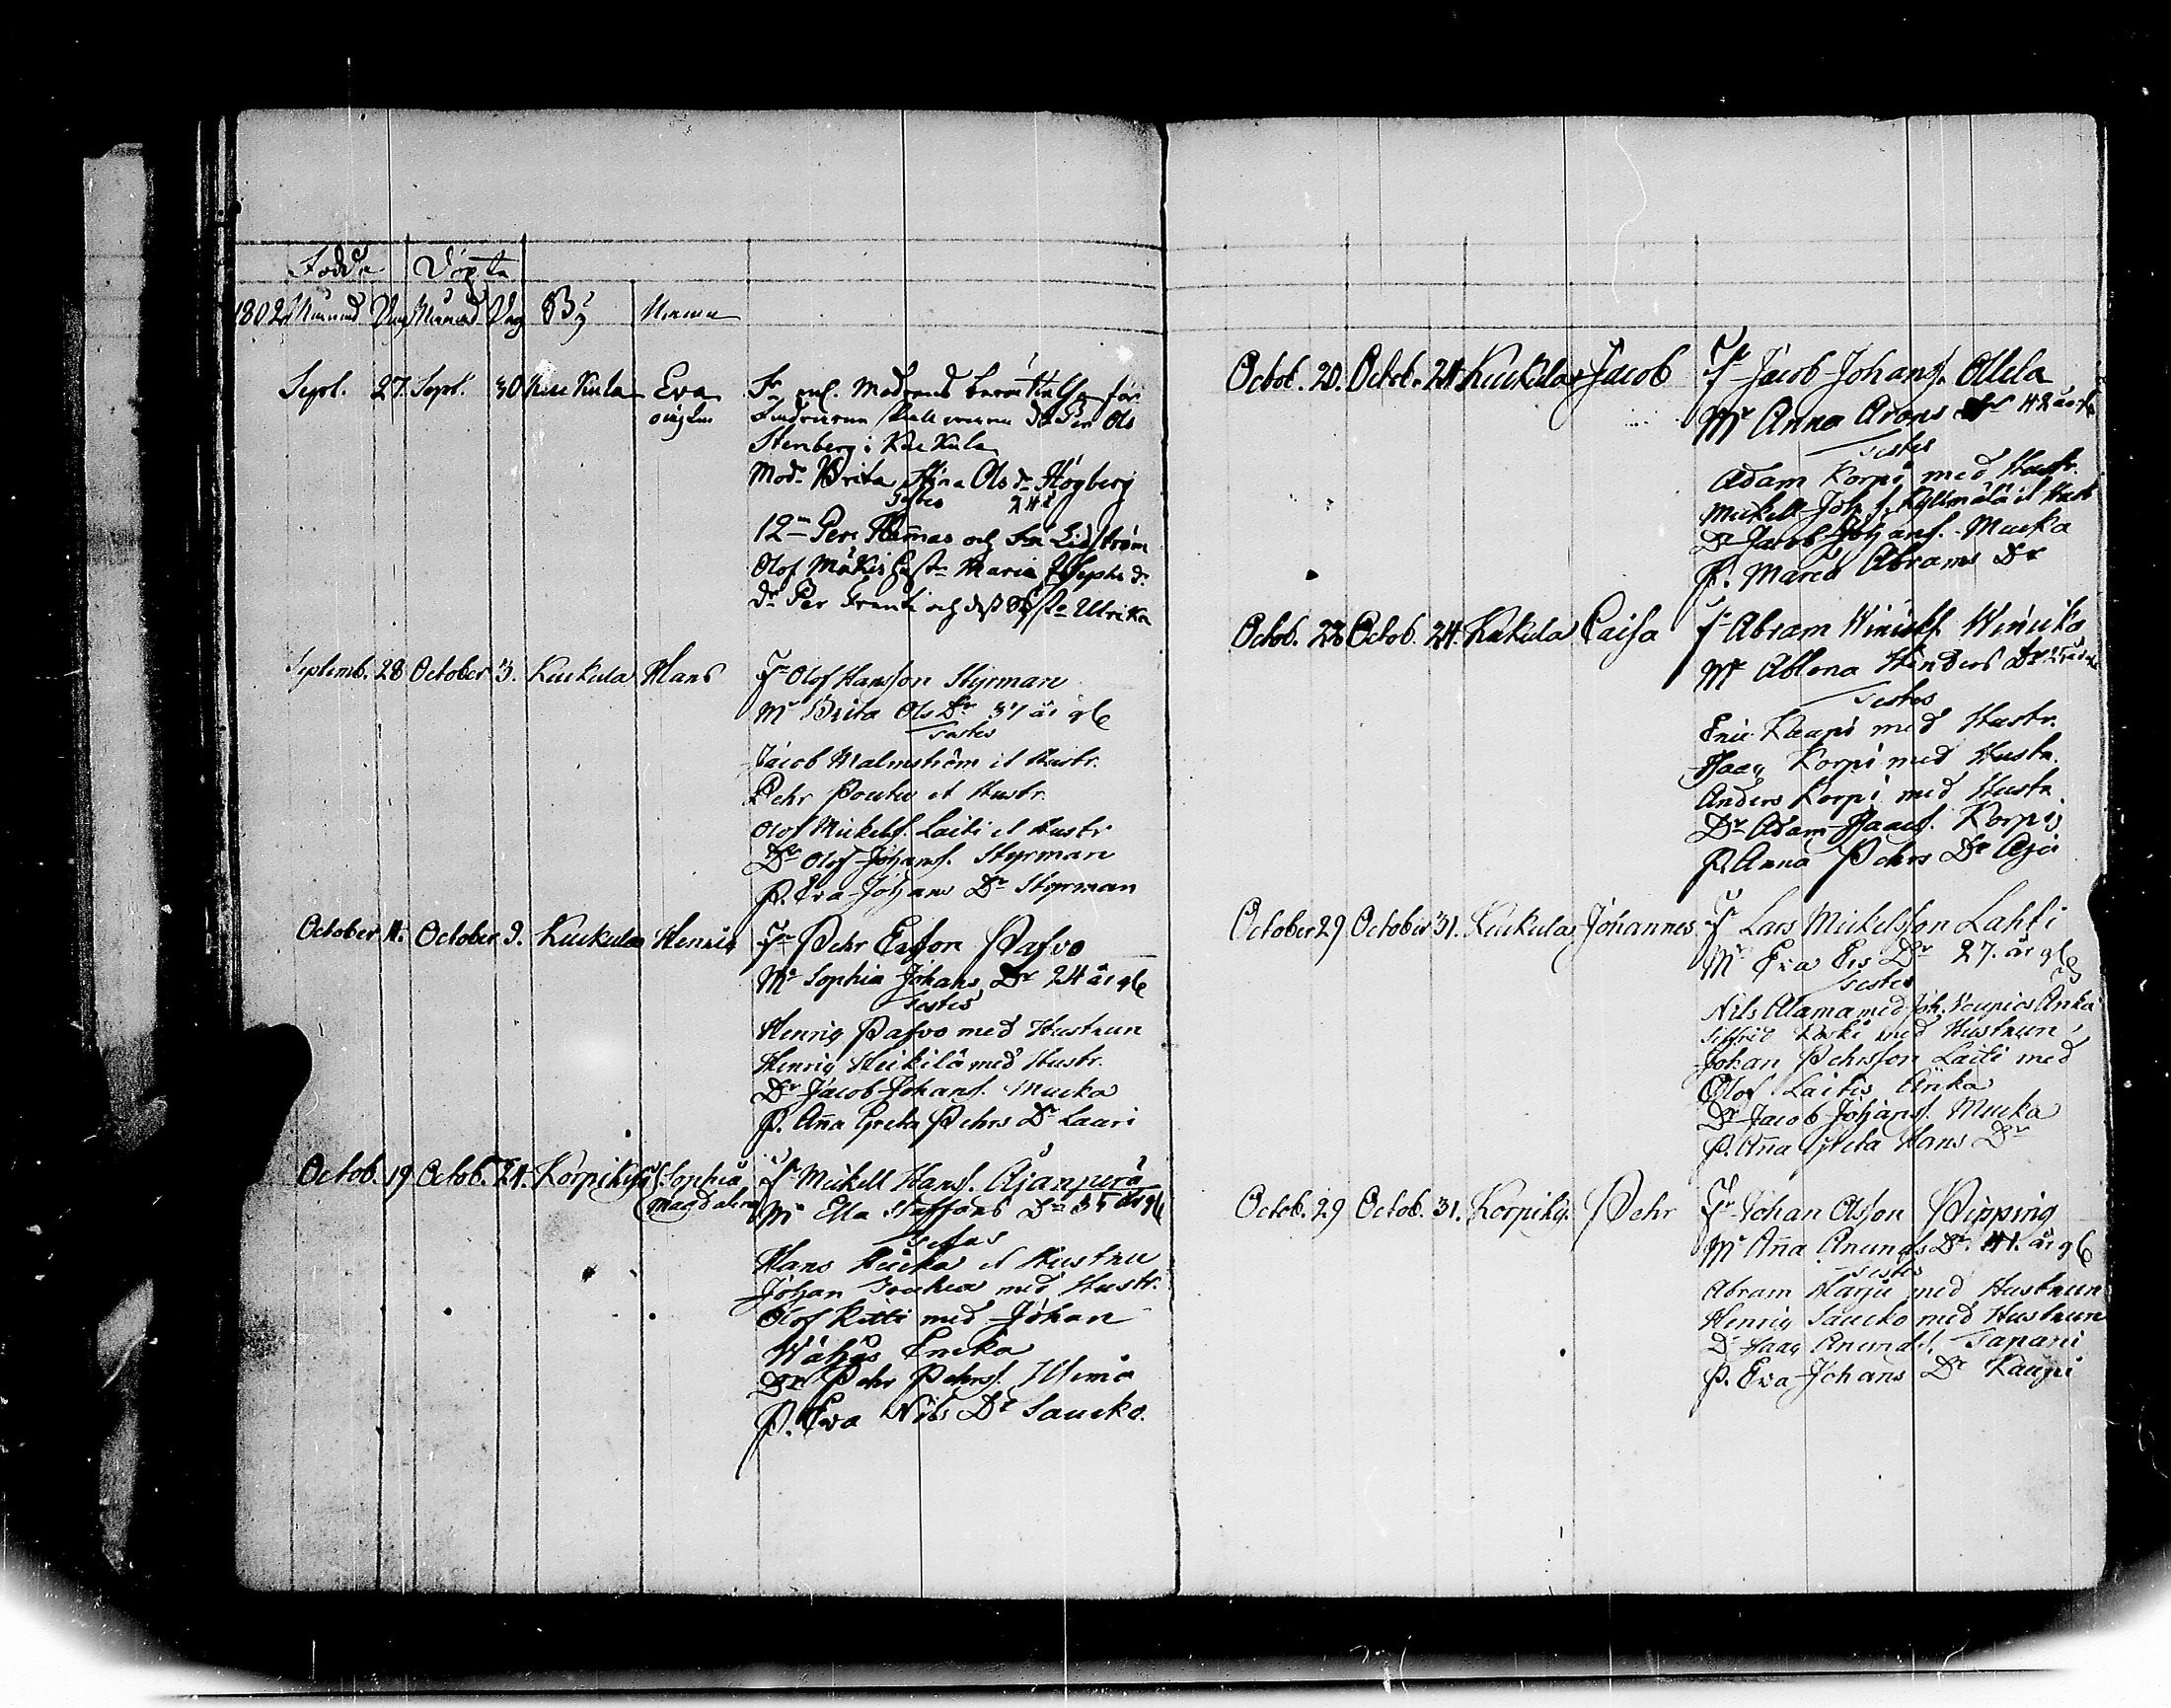 Födde Döpta
1802 Månad Dag Månad Dag By Namn
Sept. 27. Sept. 30 Kuckula Eva
F. enl. Modrens berättelse
skall vara Per Ols
Stenberg i Kuckula
Modr Brita Stina Ols dr Högberg
Testes 24 å
12 Pers och Lidström
Olof Mäkis hustr Maria Josephs dr
Dr Per och dess Syster Ulrika
Septemb. 28 October 3. Kuckula Hans
Fr Olof Hansson Styrman
Mr Brita Ols Dr 37 år gl
Testes
Jacob Malmström et Hustr.
Pehr Poutu et Hustr.
Olof Mickelss. Laiti et Hustr
Dr Olof Johanss. Styrman
P. Eva Johans Dr Styrman
October 4. October 9. Kuckula Henric
Fr Pehr Ersson Pafvo
Mr Sophia Johans Dr 24 år gl
Testes
Henriq Pafvo med Hustrun
Henriq Heikilä med Hustr.
Dr Jacob Johanss. Mucka
P. Aña Greta Pehrs Dr Lauri
Octob. 19 Octob. 24. Korpikylä Sophia
Magdalena
Fr Mickell Hanss. Äjänperä
Mr Ella Staffans Dr 35 år gl
Testes
Hans et Hustru
Johan med Hustr.
Olof Kitti med Johan
Ericka
Dr Pehr Pehrss. Niemi
P. Eva Nils Dr Saucko.
Octob. 20. Octob. 24. Kuckula Jacob
Fr Jacob Johanss. Ollila
Mr Anna Arons Dr 42 år gl
Testes
Adam Korpi med Hustr.
Mickell Joh. s. Kylmälä et Hustr
Dr Jacob Johanss. Mucka
P. Maria Abrams Dr
Octob. 22 Octob. 24. Kukula Caisa
Fr Abram Winicks. Winicko
Mr Ablona Hindrs Dr 25 år
Testes
Eric Kaupi med Hustr.
Isaac Korpi med Hustr.
Anders Korpi med Hustr.
Dr Adam Isaacs. Korpi
P. Anna Pehrs Dr
October 29 October 31. Kuckula Johannes
Fr Lars Mickelsson Lahti
Mr Eva Ers Dr 27. år gl
Testes
Nils Alama med Joh. Anka
Siffrid Koski med Hustrun
Johan Pehrsson Laiti med
Olof Laitis Änka
Dr Jacob Johanss. Mucka
P. Aña Greta Hans Dr
Octob. 29 Octob. 31. Korpiky. Pehr
Fr Johan Olsson Pipping
Mr Aña Anunds Dr. 41. år gl
Testes
Abram Harju med Hustrun
Henriq Saucko med Hustrun
Dr Isaac Anunds. Tapani
P. Eva Johans Dr Kaupi